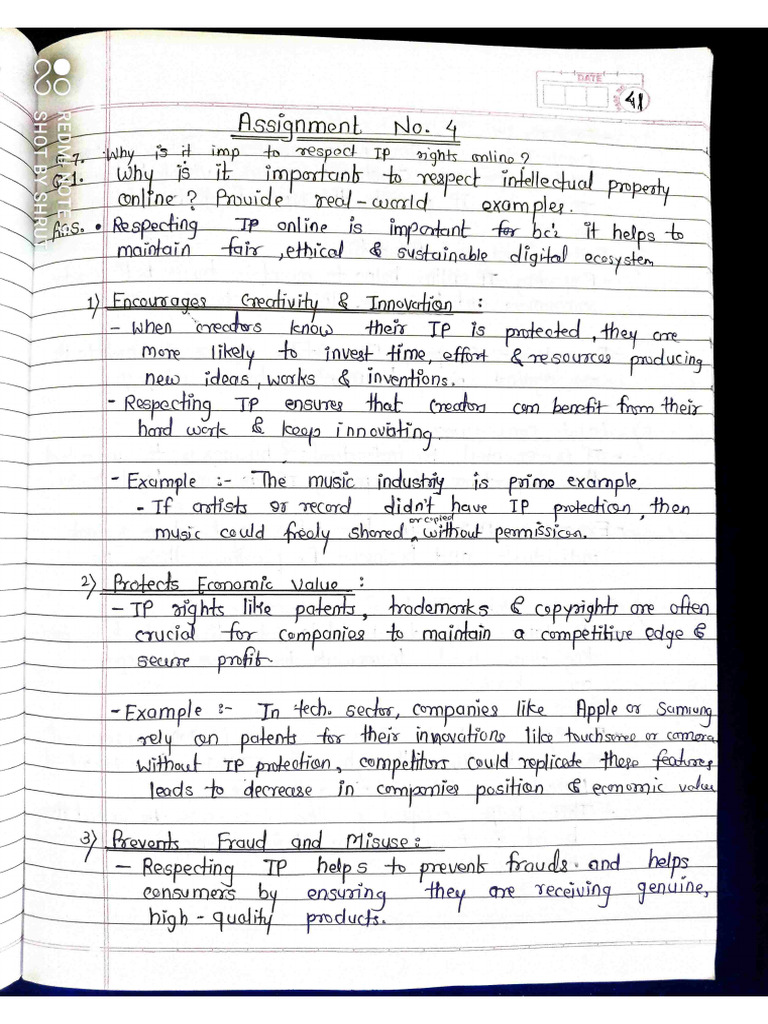 DATE
41
Assignment No. 4
Q.7. Why is it imp to respect IP rights online?
Q.1. Why is it important to respect intellectual property
online? Provide real-world examples.
Ans. • Respecting IP online is important for bc'z it helps to
maintain fair, ethical & sustainable digital ecosystem
1) Encourages Creativity & Innovation :
- When creators know their IP is protected, they are
more likely to invest time, effort & resources producing
new ideas, works & inventions.
- Respecting IP ensures that creators can benefit from their
hard work & keep innovating.
- Example :- The music industriy is prime example.
- If artists or record didn't have IP protection, then
music could freely shared or copied without permission.
2) Protects Economic Value :
- IP rights like patents, trademarks & copyrights are often
crucial for companies to maintain a competitive edge &
secure profit.
- Example :- In tech. sector, companies like Apple or Samsung
rely on patents for their innovations like touchscree or camera
Without IP protection, competitors could replicate these features
leads to decrease in companies position & economic value
3) Prevents Fraud and Misuse :
- Respecting IP helps to prevent frauds and helps
consumers by ensuring they are receiving genuine,
high-quality products.
REDMI NOTE
SHOT BY SHRUT